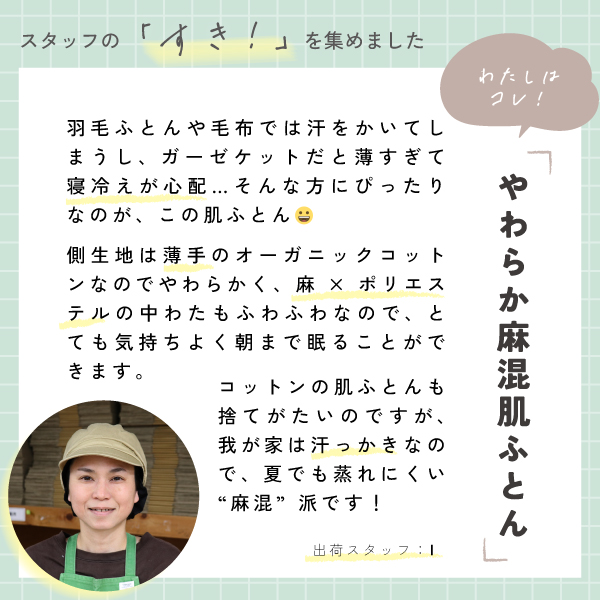 スタッフの「すき！」を集めました
わたしは
コレ！
「やわらか麻混肌ふとん」
羽毛ふとんや毛布では汗をかいてし
まうし、ガーゼケットだと薄すぎて
寝冷えが心配…そんな方にぴったり
なのが、この肌ふとん😀
側生地は薄手のオーガニックコット
ンなのでやわらかく、麻 × ポリエス
テルの中わたもふわふわなので、と
ても気持ちよく朝まで眠ることがで
きます。
コットンの肌ふとんも
捨てがたいのですが、
我が家は汗っかきなの
で、夏でも蒸れにくい
“麻混” 派です！
出荷スタッフ：I